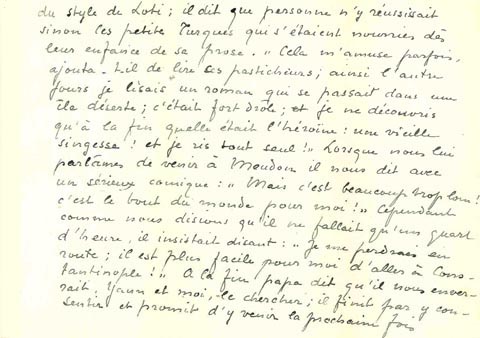 du style de Loti; il dit que personne n'y réussissait
sinon les petites Turques qui s'étaient nourries dès
leur enfance de sa prose. "Cela m'amuse parfois,
ajouta-t-il de lire ces pasticheurs; ainsi l'autre
jours je lisais un roman qui se passait dans une
île déserte; c'était fort drôle; et je ne découvris
qu'à la fin quelle était l'héroïne: une vieille
singesse! et je ris tout seul!" Lorsque nous lui
parlâmes de venir à Meudon il nous dit avec
un sérieux comique: "Mais c'est beaucoup trop loin!
c'est le bout du monde pour moi!" Cependant
comme nous disions qu'il ne fallait qu'un quart
d'heure, il insistait disant: "Je me perdrais en
route; il est plus facile pour moi d'aller à Cons-
tantinople!" A la fin papa dit qu'il nous enver-
rait, Yann et moi, le chercher; il finit par y con-
sentir et promit d'y venir la prochaine fois